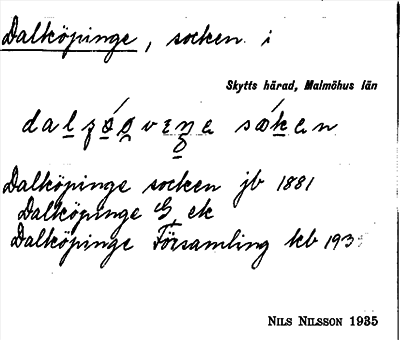 Dalköpinge, socken i
Skytts härad, Malmöhus län
Dalköpinge socken jb 1881
Dalköpinge G ek
Dalköpinge Församling kb 193
NILS NILSSON 1935